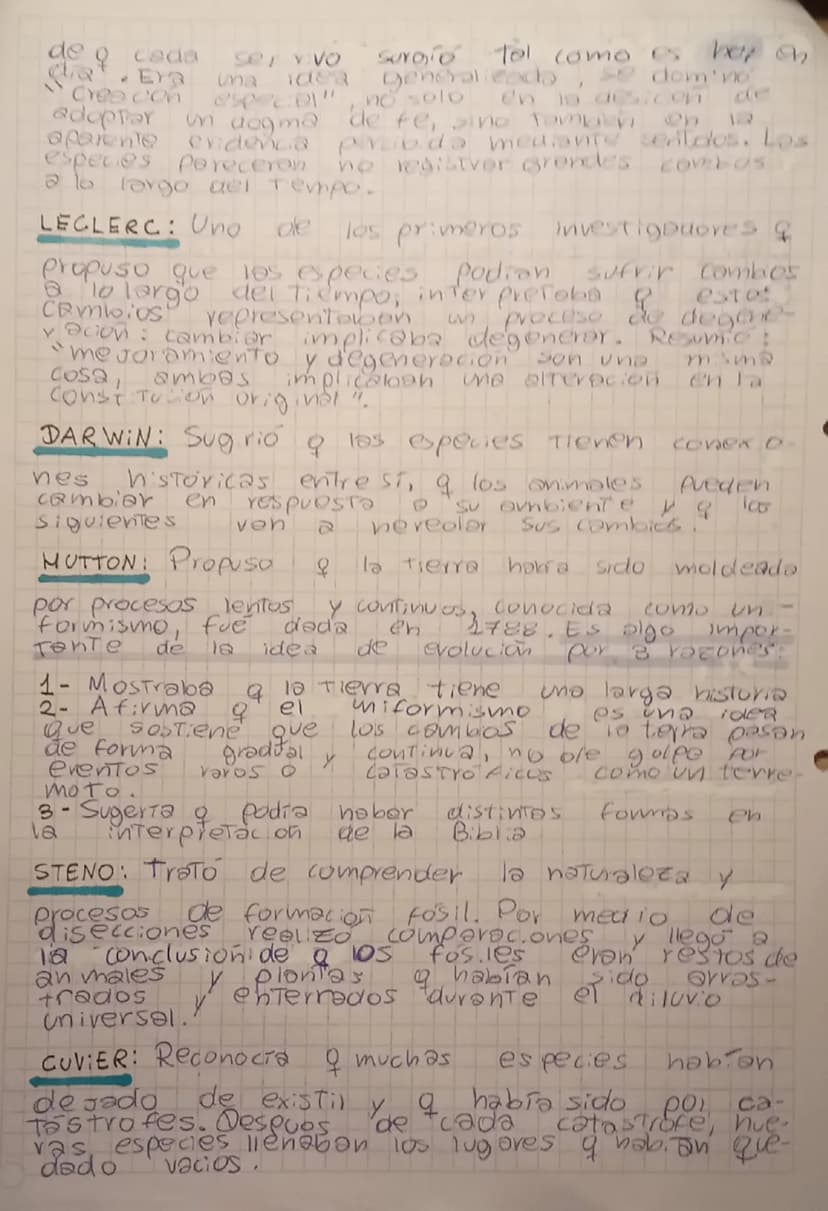 de q cada ser vivo surgió tal como es hoy en
día. Era una idea generalizada, se dominó
"Creación especial", no solo en la desicón de
adoptar un dogma de fe, sino también en la
aparente evidencia mediante sentidos. Las
especies pareceran no registrar grandes cambios
a lo largo del tiempo.
LECLERC: Uno de los primeros investigadores q
propuso que las especies podían sufrir cambios
a lo largo del tiempo, interpretaba q estos
cambios representaban un proceso de degene-
ración: cambiar implicaba degenerar. Resumió:
"mejoramiento y degeneración son una misma
cosa, ambas implicaban una alteración en la
constitución original".
DARWIN: Sugrió q las especies tienen conexio-
nes históricas entre sí, q los animales pueden
cambiar en respuesta a su ambiente y q los
siguientes van a heredar sus cambios.
HUTTON: Propuso q la tierra había sido moldeada
por procesos lentos y continuos, conocida como un-
formismo, fué dada en 1788. Es algo impor-
tante de la idea de evolución por 3 razones:
1- Mostraba q la tierra tiene una larga historia
2- Afirma q el uniformismo es una idea
que sostiene que los cambios de la tierra pasan
de forma gradual y continua, no de golpe por
eventos raros o catastróficos como un terre-
moto.
3- Sugería q podía haber distintas formas en
la interpretación de la Biblia
STENO: Trató de comprender la naturaleza y
procesos de formación fósil. Por medio de
disecciones realizó comparaciones y llegó a
la conclusión de q los fósiles eran restos de
animales y plantas q habían sido arras-
trados y enterrados durante el diluvio
universal.
CUVIER: Reconocía q muchas especies habían
dejado de existir y q había sido por ca-
tástrofes. Después de cada catástrofe, nue-
vas especies llenaban los lugares q habían que-
dado vacíos.